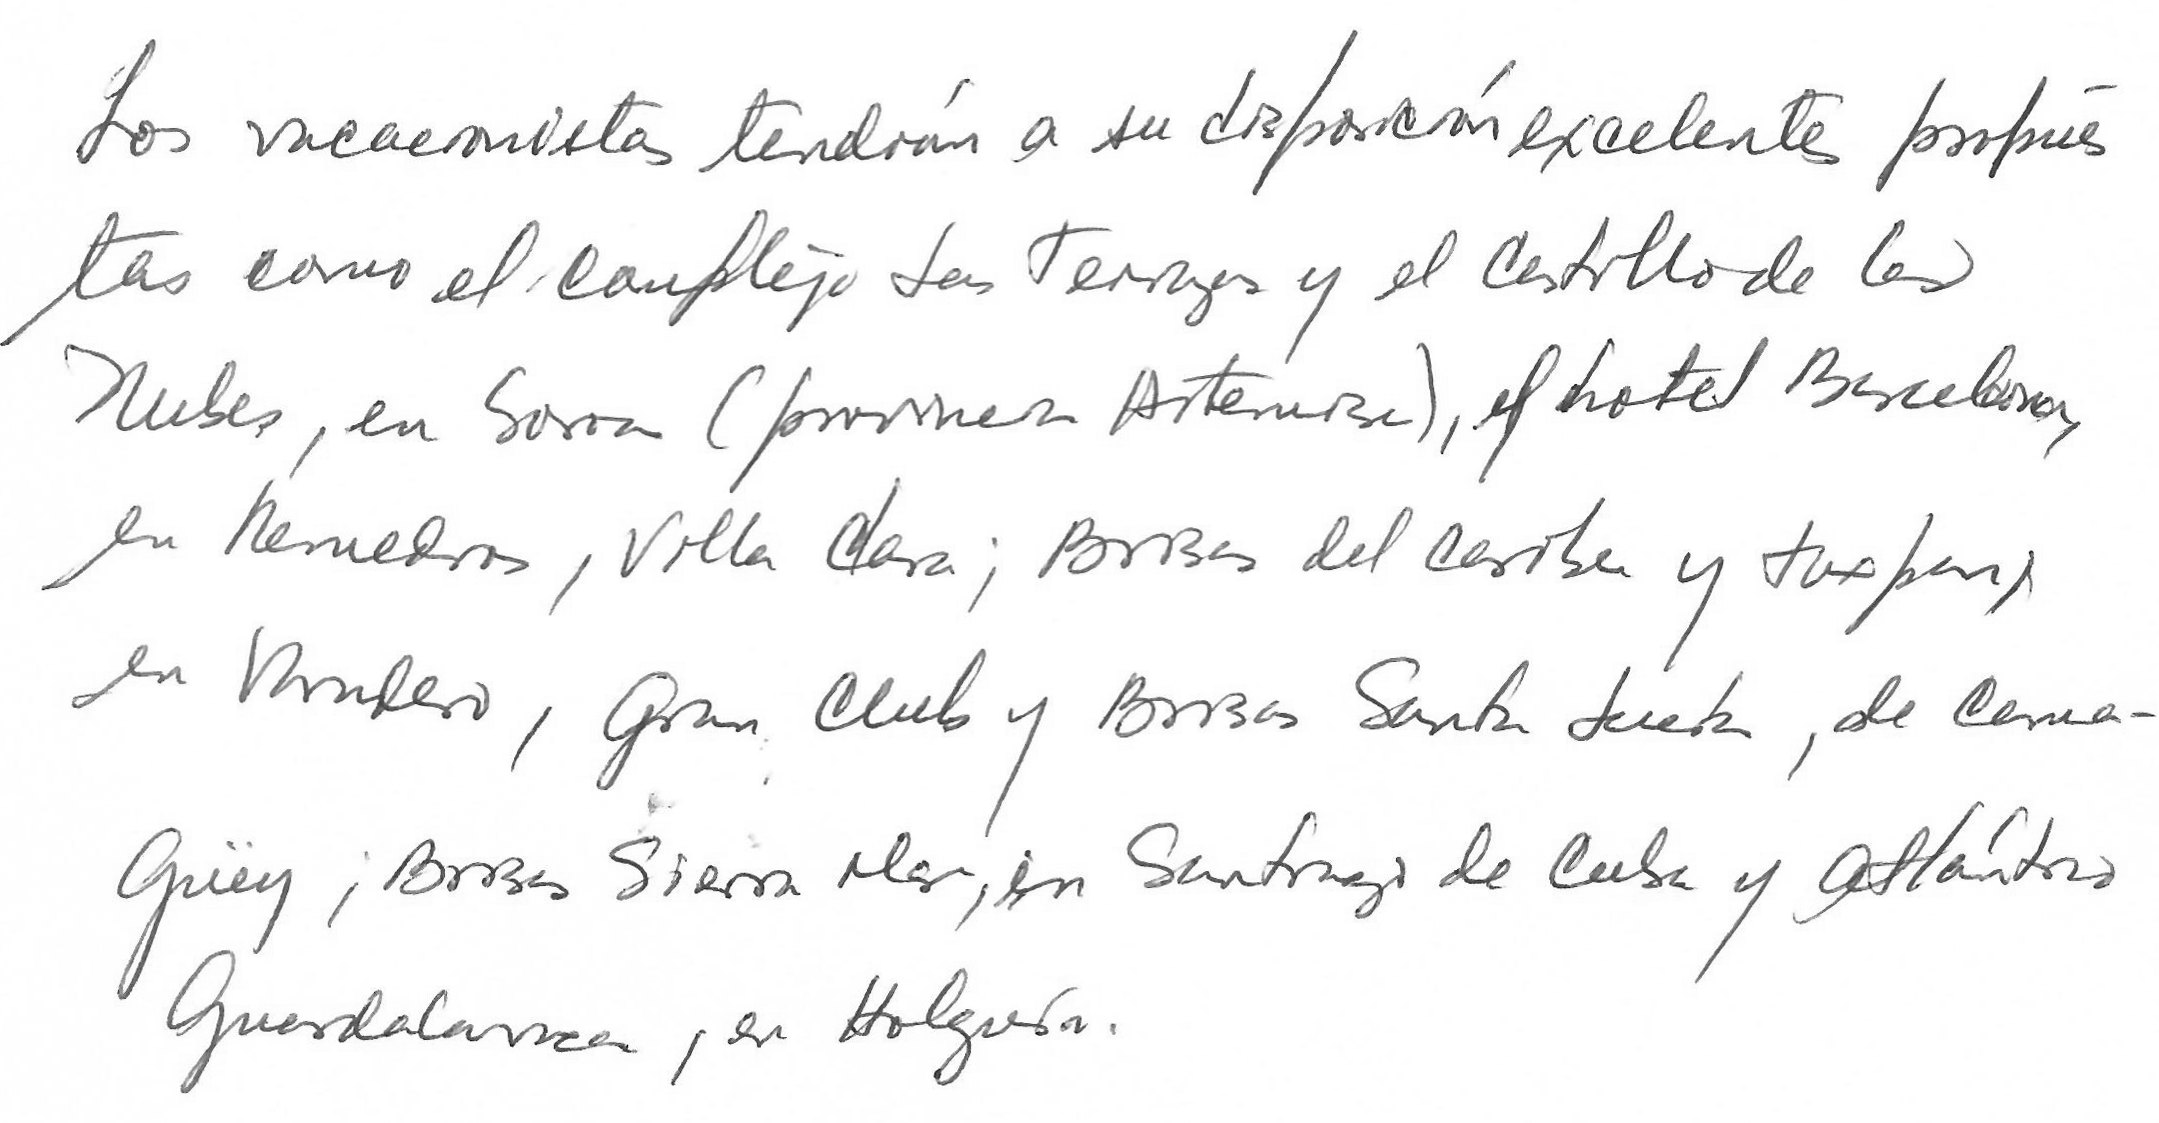 Los vacacionistas tendrán a su disposición excelentes propues
tas como el complejo Las Terrazas y el Castillo de las
Nubes, en Soroa (provincia Artemisa), el hotel Barcelona,
en Remedios, Villa Clara; Brisas del Caribe y Tuxpan,
en Varadero, Gran Club y Brisas Santa Lucía, de Cama-
güey; Brisas Sierra Mar, en Santiago de Cuba y Atlántico
Guardalavaca, en Holguín.